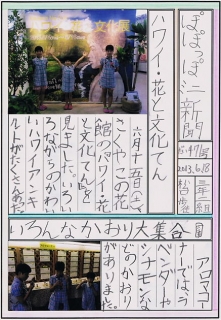 ぽぽっぽ新聞
2013.6.18
ハワイ・花と文化てん
六月十五日(土)
さくやこの花
館のハワイ・花
と文化てんを
見ました。いろいろ
ながらのかわい
いハワイアンキ
ルトがたくさんあった
いろんなかおり大集合
アロマコー
ナーではラ
ベンダーや
シナモンな
どのかおり
がありました。